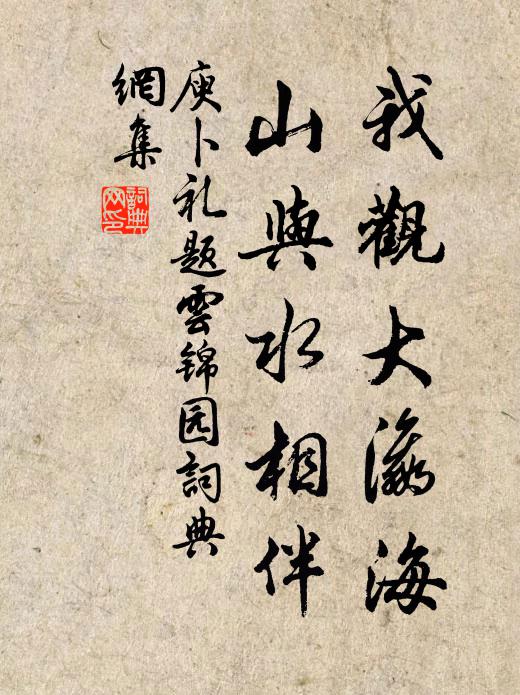 我觀大瀛海
山與水相伴
庾卜礼题雲锦园詞典
網集
詞典網印